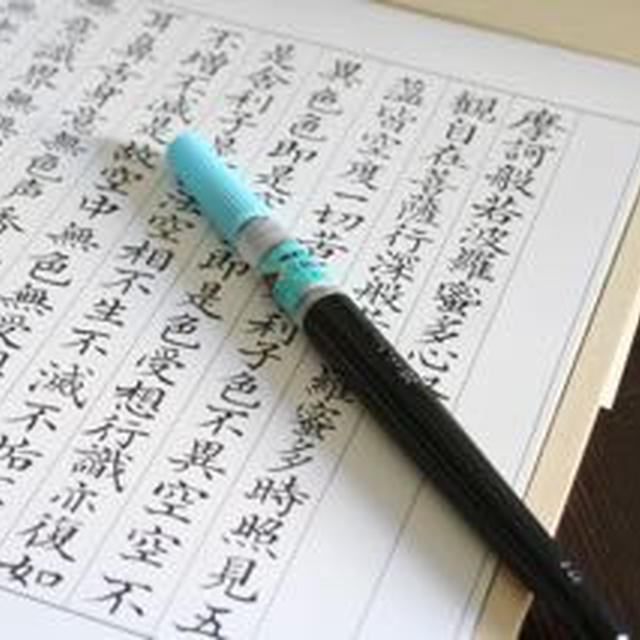 摩訶般若波羅蜜多心
観自在菩薩行深般 羅蜜多時照見五
蘊皆空度一切苦 利子色不異空空不
異色色即是 即是色受想行識亦復如
是舎利子是 空相不生不滅不垢
不増不減是故空中無色無受
耳鼻舌身意無色声香